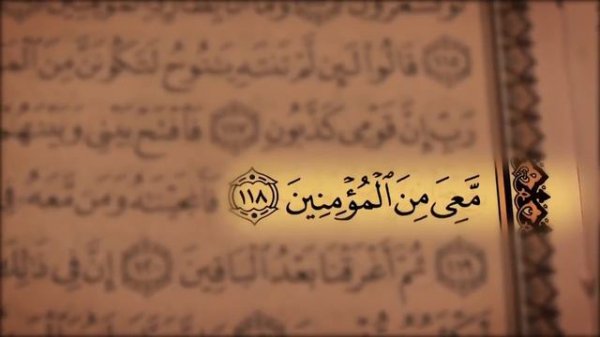 ١١٥ قَالُوا۟ لَئِن لَّمْ تَنتَهِ يَٰنُوحُ لَتَكُونَنَّ مِنَ
رَبِّ إِنَّ قَوْمِى كَذَّبُونِ ١١٧ فَٱفْتَحْ بَيْنِى وَبَيْنَهُمْ
مَّعِىَ مِنَ ٱلْمُؤْمِنِينَ ١١٨ فَأَنجَيْنَٰهُ وَمَن مَّعَهُۥ فِى
١١٩ ثُمَّ أَغْرَقْنَا بَعْدُ ٱلْبَاقِينَ ١٢٠ إِنَّ فِى ذَٰلِكَ